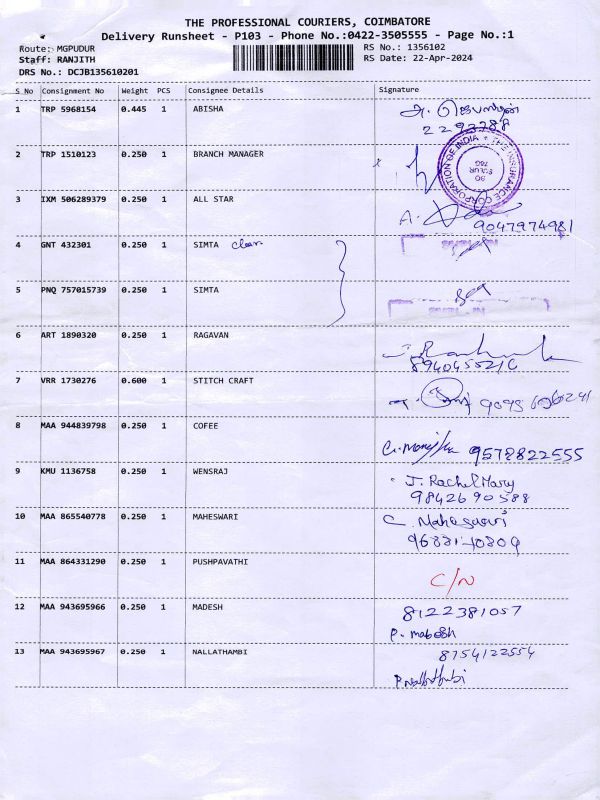 THE PROFESSIONAL COURIERS, COIMBATORE
Delivery Runsheet - P103 - Phone No.:0422-3505555 - Page No.:1
Route: MGPUDUR RS No.: 1356102
Staff: RANJITH RS Date: 22-Apr-2024
DRS No.: DCJB135610201
S No Consignment No Weight PCS Consignee Details Signature
1 TRP 5968154 0.445 1 ABISHA
2 TRP 1510123 0.250 1 BRANCH MANAGER
3 IXM 506289379 0.250 1 ALL STAR
9047974981
4 GNT 432301 0.250 1 SIMTA
5 PNQ 757015739 0.250 1 SIMTA
6 ART 1890320 0.250 1 RAGAVAN
7 VRR 1730276 0.600 1 STITCH CRAFT
8 MAA 944839798 0.250 1 COFEE
9578822555
9 KMU 1136758 0.250 1 WENSRAJ
J. Rachel Mary
9842690588
10 MAA 865540778 0.250 1 MAHESWARI
11 MAA 864331290 0.250 1 PUSHPAVATHI
C/N
12 MAA 943695966 0.250 1 MADESH
8122381057
P. madesh
13 MAA 943695967 0.250 1 NALLATHAMBI
8754122554